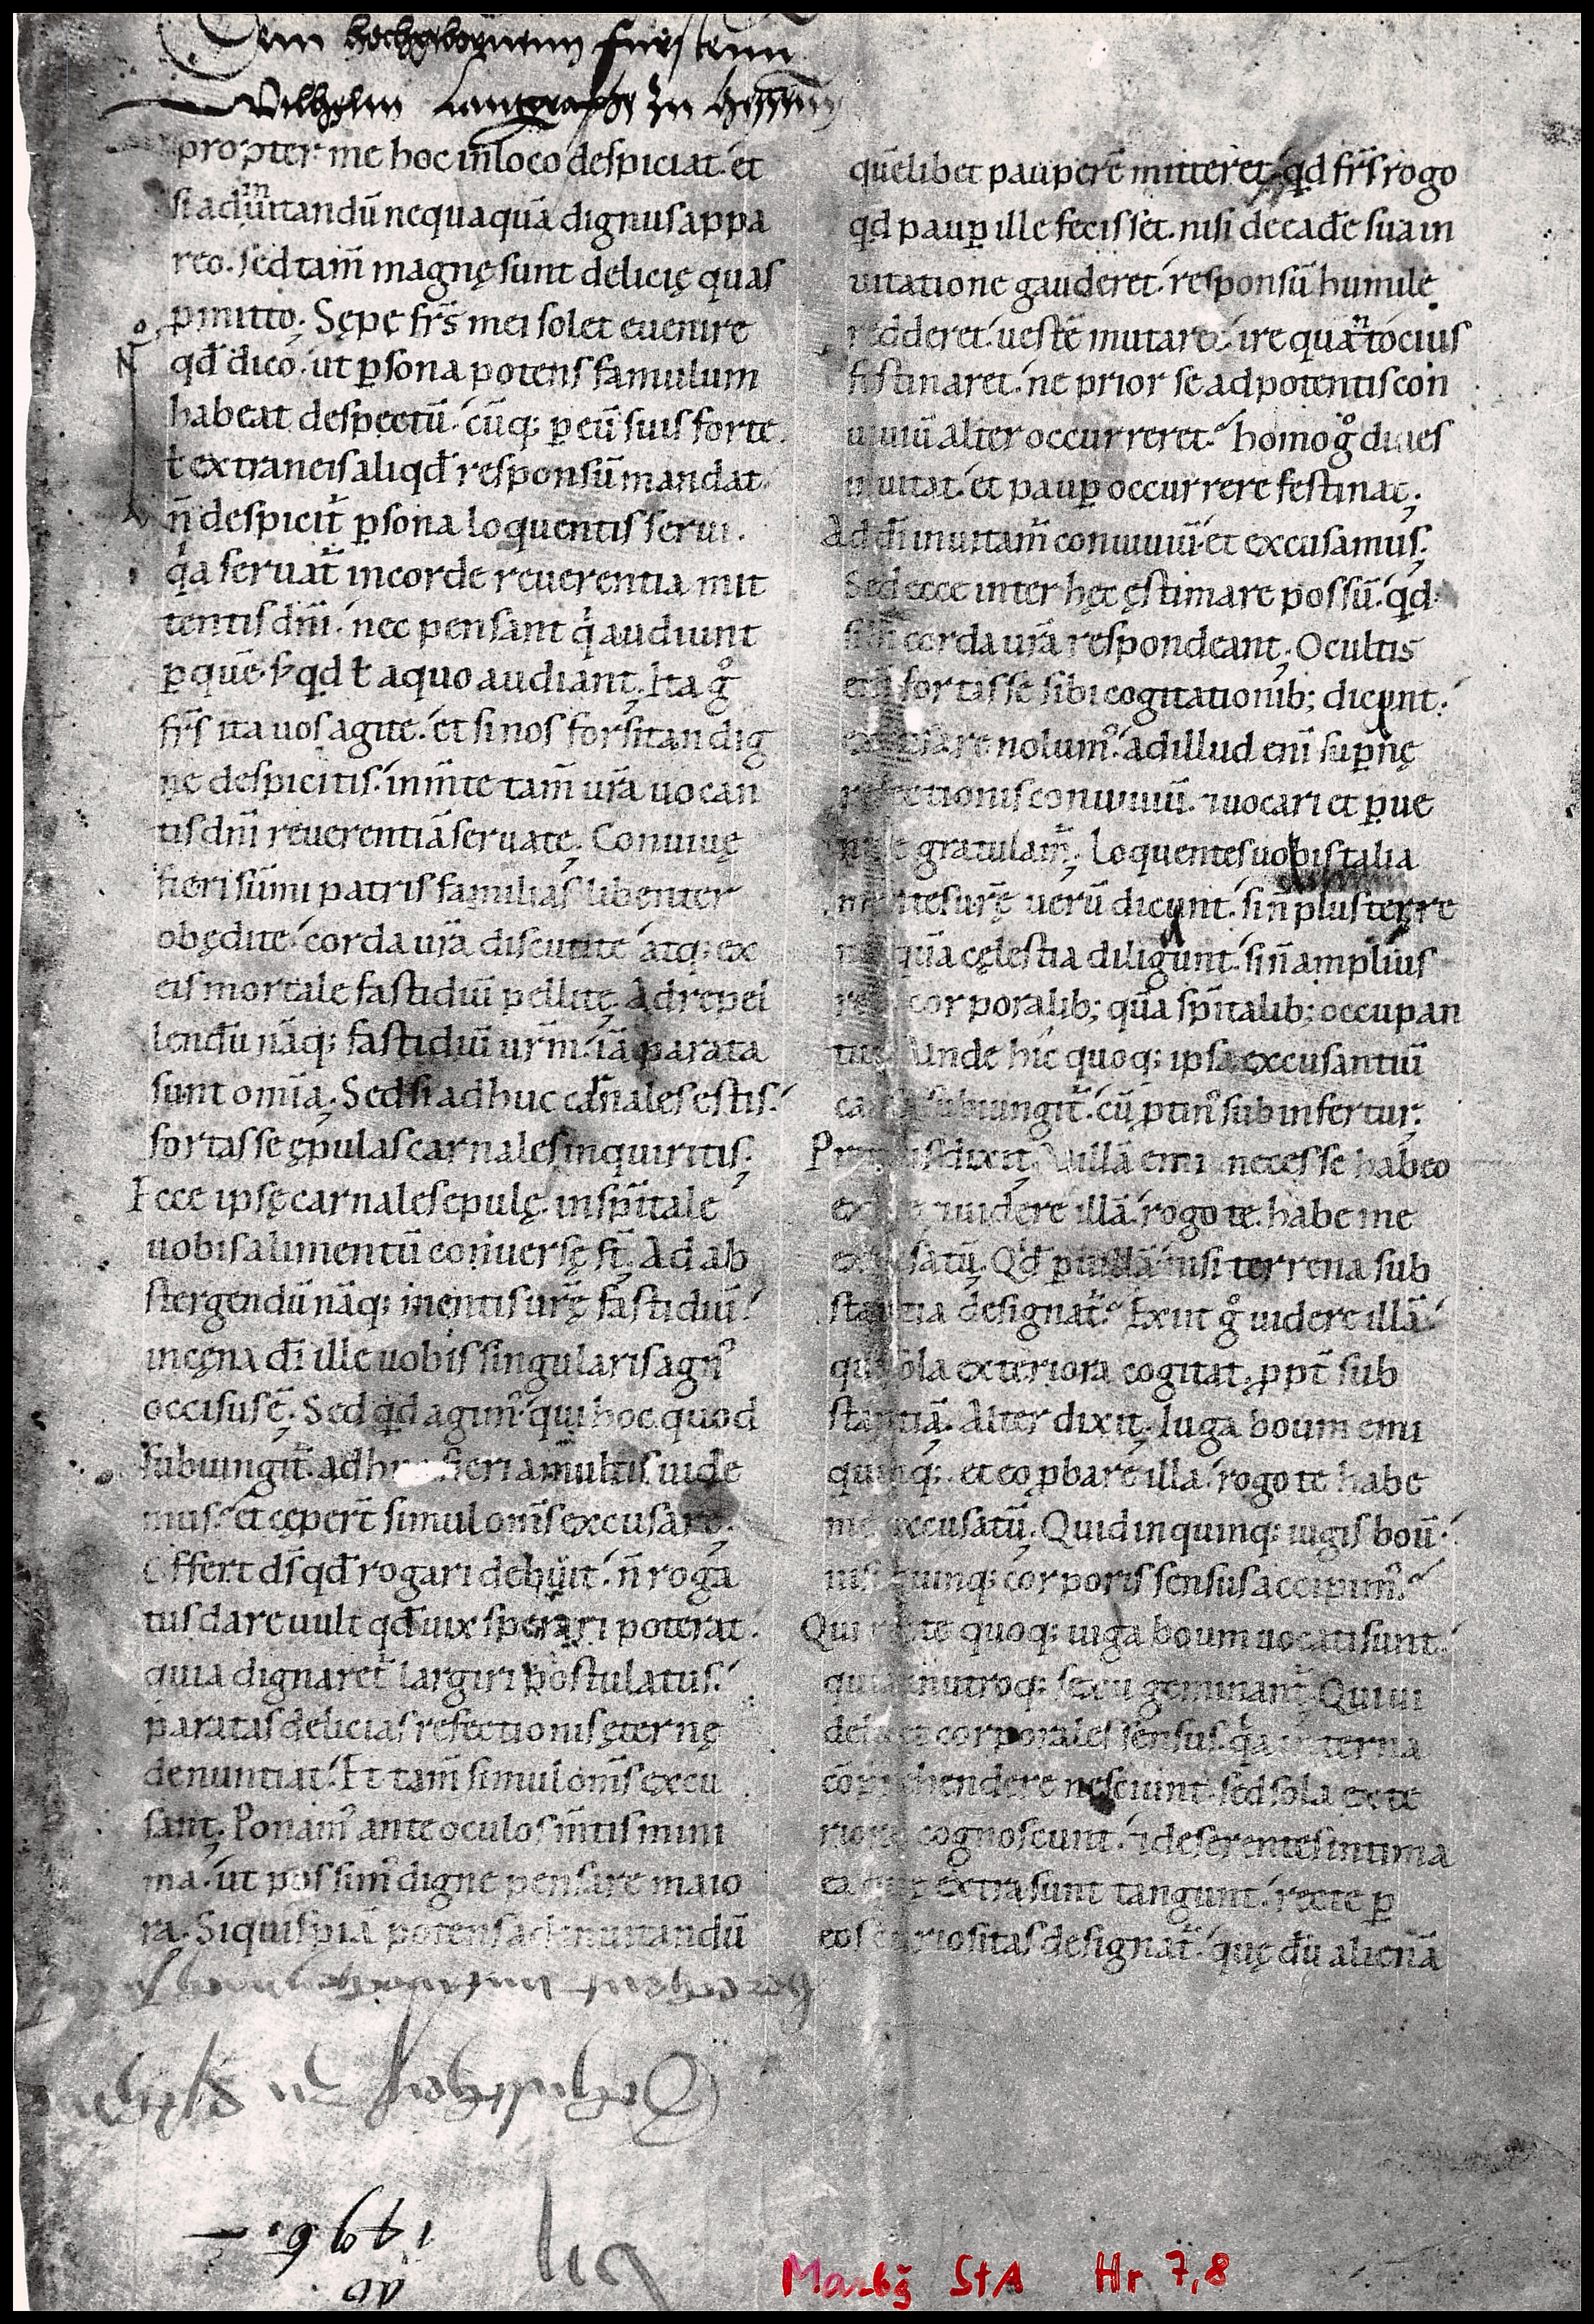 Dem hochgebornenn furstenn
Wilhelm Lantgraffe zu Hessenn
propter me hoc in loco despiciat. et
si aduitandū nequaquā dignus appa
reo. sed tam̄ magnę sunt delicię quas
ꝑmitto; Sępe frs̄ mei solet euenire
qd̄ dico. ut ꝑsona potens famulum
habeat despectū. cūq; ꝑ eū suis forte
ł extraneis aliqd̄ responsū mandat.
n̄ despicit᷑ ꝑsona loquentis serui.
qͥa seruat᷑ in corde reuerentia mit
tentis dn̄i. nec pensant qͥ audiunt
ꝑ quē. s; qd ł a quo audiant; Ita gͦ
frs̄ ita uos agite. et si nos forsitan dig
ne despicitis. in m̄te tam̄ ur̄a uocan
tis dn̄i reuerentiā seruate; Conuiuę
fieri sūmi patris familias libenter
obędite. corda ur̄a discutite atq; ex
eis mortale fastidiū pellite; Ad repel
lendū nāq; fastidiū ur̄m. iā parata
sunt omīa; Sed si adhuc carnales estis.
fortasse ępulas carnales inquiritis;
Ecce ipsę carnales epulę. in spīitale
uobis alimentū conuersę st̄; Ad ab
stergendū nāq; mentis ur̄ę fastidiū.
in cęna dī ille uobis singularis agn᷒
occisus ē; Sed qd agim᷒ qui hoc quod
subiungit᷑. adhuc fieri a multis uide
mus. et cęper̄t simul om̄s excusare;
Offert ds̄ qd̄ rogari debuit. n̄ roga
tus dare uult qd̄ uix sperari poterat.
quia dignaret᷑ largiri postulatus.
paratas delicias refectionis ęternę
denuntiat. Et tam̄ simul om̄s excu
sant; Ponam᷒ ante oculos m̄tis mini
ma. ut possim᷒ digne pensare maio
ra. Si quispiā potens ad inuitandū
quēlibet pauperē mitteret. qd frs̄ rogo
qd pauꝑ ille fecisset. nisi de eadē sua in
uitatione gauderet. responsū humile
redderet. uestē mutaret. ire quantocius
festinaret. ne prior se ad potentis con
uiuiū alter occurreret. homo gͦ diues
inuitat. et pauꝑ occurrere festinat;
Ad dī inuitam᷑ conuiuiū. et excusamus;
Sed ecce inter hęc ęstimare possū. qd
sibi corda ur̄a respondeant; Ocultis
etenī fortasse sibi cogitationib; dicunt.
excusare nolum᷒. ad illud enī suꝑnę
refectionis conuiuiū. ⁊ uocari et ꝑue
nire gratulam᷑; Loquentes uobis talia
mentes ur̄ę uerū dicunt. si n̄ plus terre
na quā cęlestia diligunt. si n̄ amplius
reb; corporalib; quā spīitalib; occupan
tur. Unde hic quoq; ipsa excusantiū
causa subiungit᷑. cū ꝓtin᷒ subinfertur;
Primus dixit; Uillā emi. ⁊ necesse habeo
exire ⁊ uidere illā. rogo te. habe me
excusatū; Qd̄ ꝑ uillā nisi terrena sub
stantia designat᷑. Exiit gͦ uidere illā.
qui sola exteriora cogitat. ꝓpt̄ sub
stantiā. Alter dixit; Iuga boum emi
quinq;. et eo ꝓbare illa. rogo te habe
me excusatū; Quid in quinq; iugis boū.
nisi quinq; corporis sensus accipim᷒.
Qui recte quoq; iuga boum uocati sunt.
quia in utroq; sexu geminant᷑; Qui ui
delicet corporales sensus. qͥa interna
cōprehendere nesciunt. sed sola exte
riora cognoscunt. ⁊ deserentes intima
ea que extra sunt tangunt. recte ꝑ
eos curiositas designat᷑. quę dū alienā
1496.
Marbg StA Hr 7,8